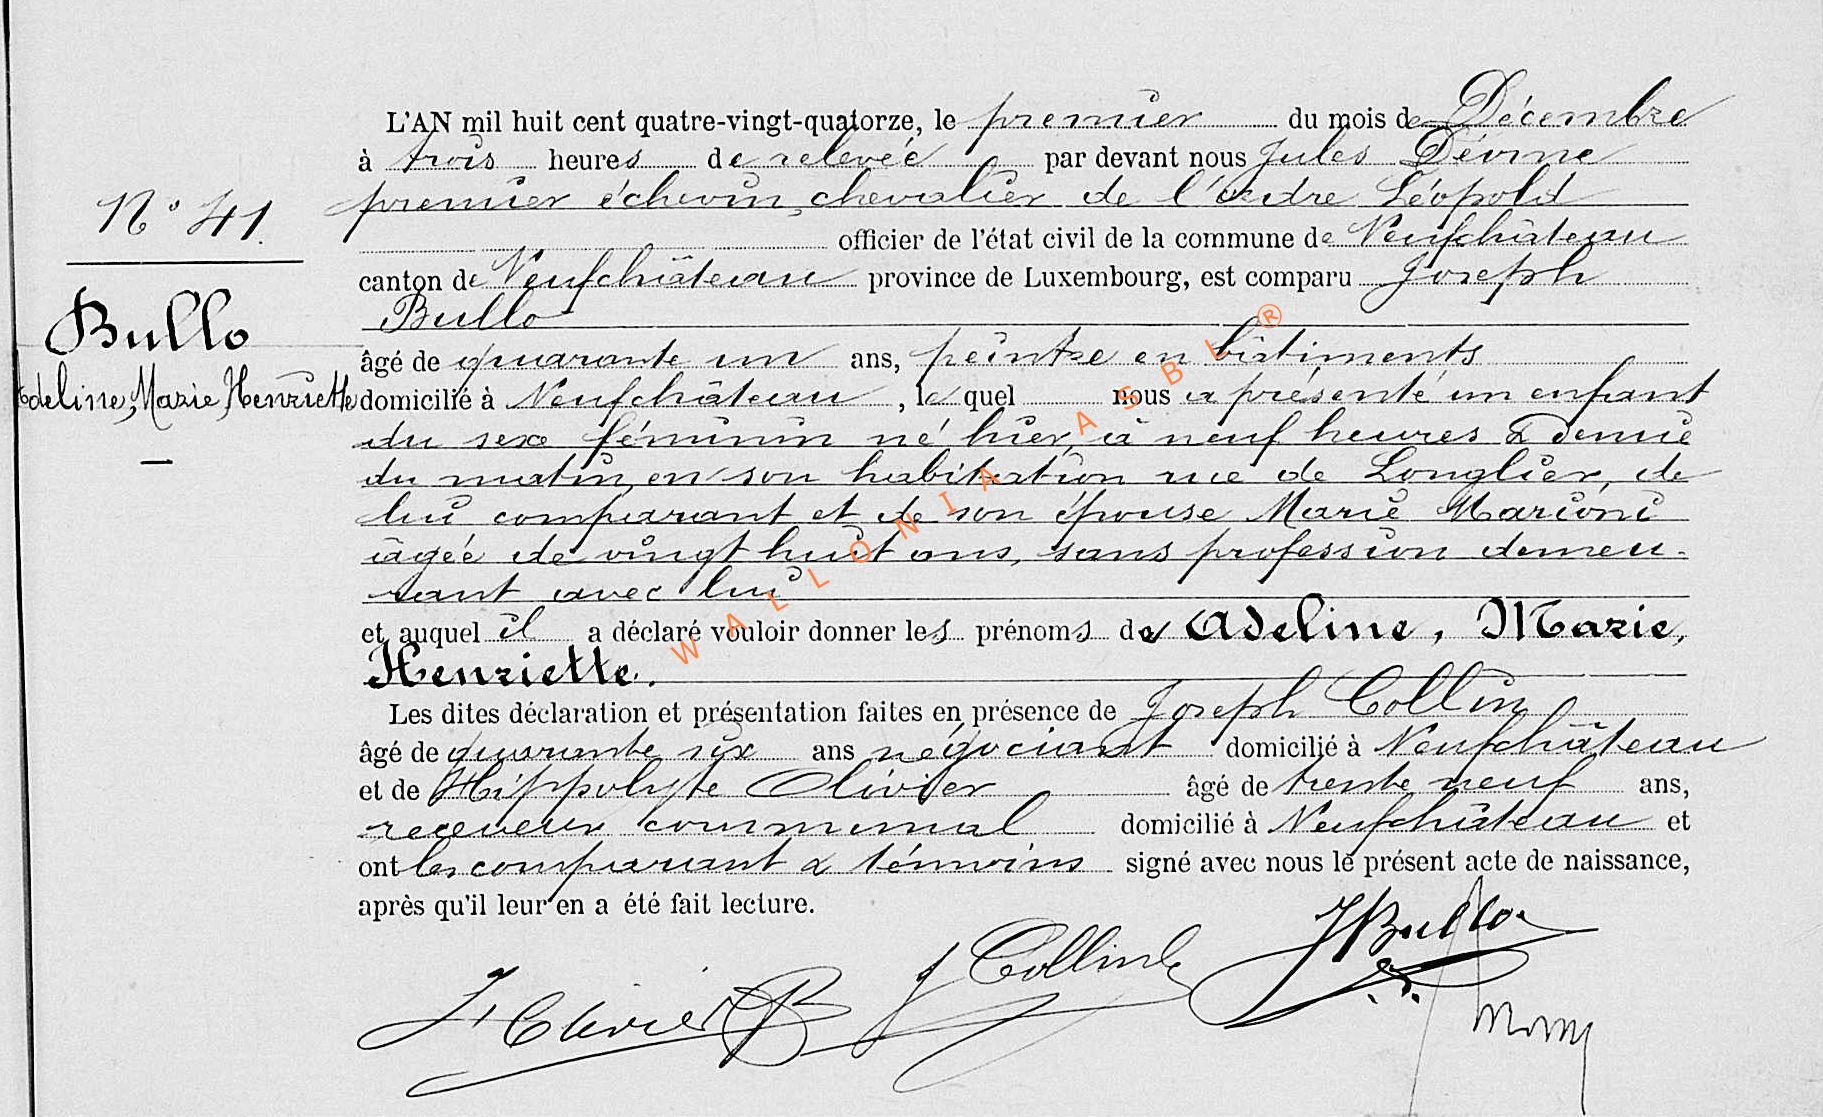 L'AN mil huit cent quatre-vingt-quatorze, le premier du mois de Décembre
à trois heures de relevée par devant nous Jules
premier échevin, chevalier de l'ordre Léopold
officier de l'état civil de la commune de Neufchâteau
canton de Neufchâteau province de Luxembourg, est comparu Joseph
Bullo
âgé de quarante un ans, peintre en bâtiments
domicilié à Neufchâteau, le quel nous a présenté un enfant
du sexe féminin né hier, à neuf heures & demie
du matin, en son habitation rue de Longlier, de
lui comparant et de son épouse Marie Marioni
âgée de vingt huit ans, sans profession demeu-
rant avec lui
et auquel il a déclaré vouloir donner les prénoms de Adeline, Marie,
Henriette.
Les dites déclaration et présentation faites en présence de Joseph Collin
âgé de quarante six ans négociant domicilié à Neufchâteau
et de Hippolyte Olivier âgé de trente neuf ans,
receveur communal domicilié à Neufchâteau et
ont les comparant & témoins signé avec nous le présent acte de naissance,
après qu'il leur en a été fait lecture.
N° 41.
Bullo
Adeline, Marie, Henriette
H Olivier
J Collin
J Bullo
WALLONIA ASBL ®